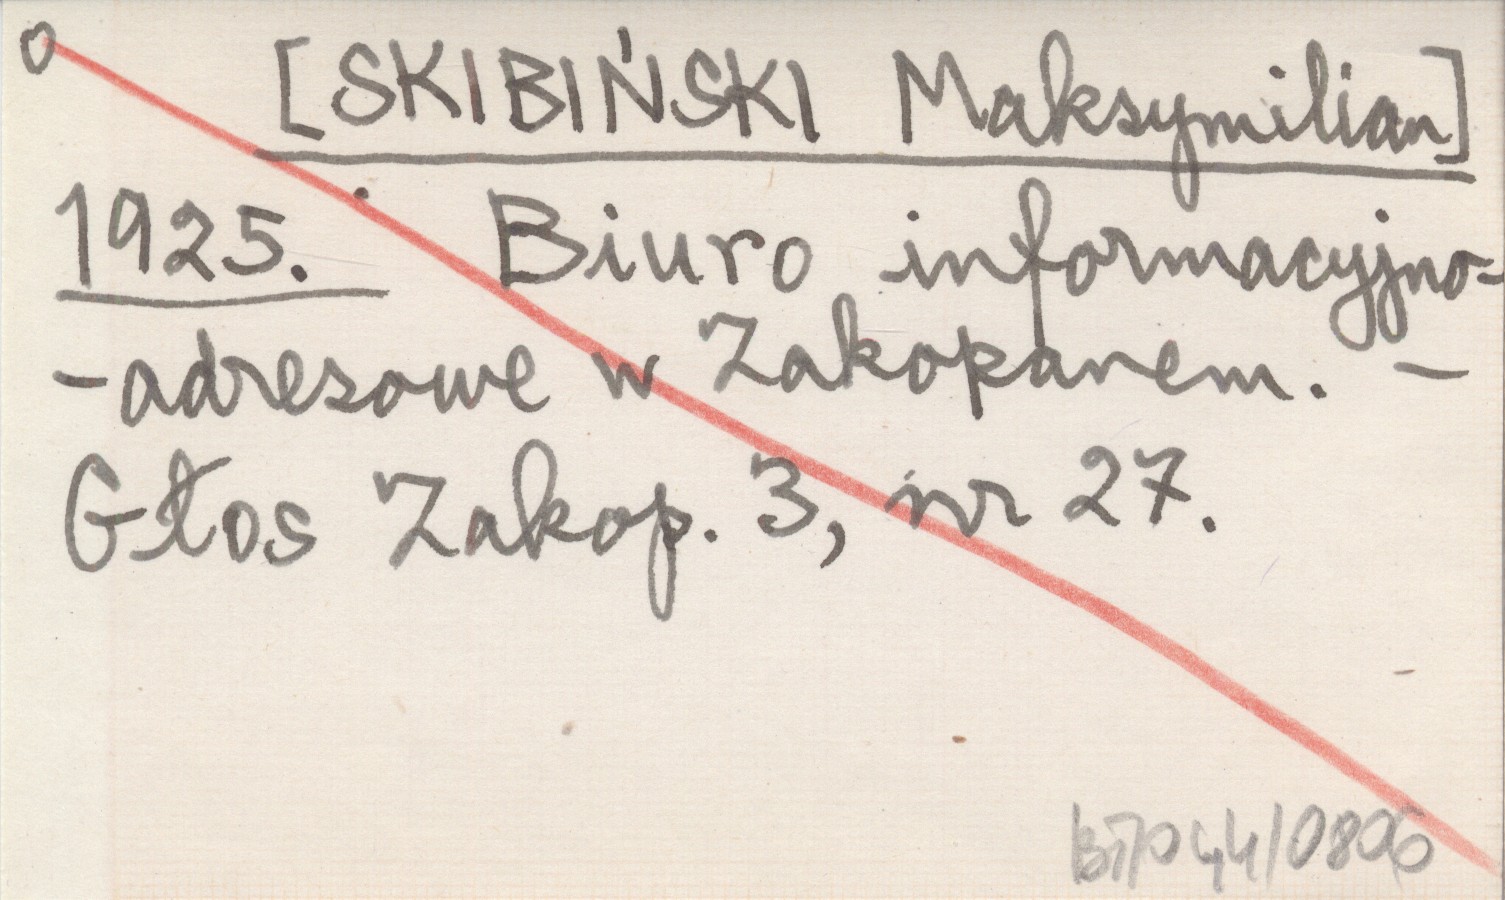 o [SKIBIŃSKI Maksymilian]
1925. Biuro informacyjno-
-adresowe w Zakopanem. -
Głos Zakop. 3, nr 27.